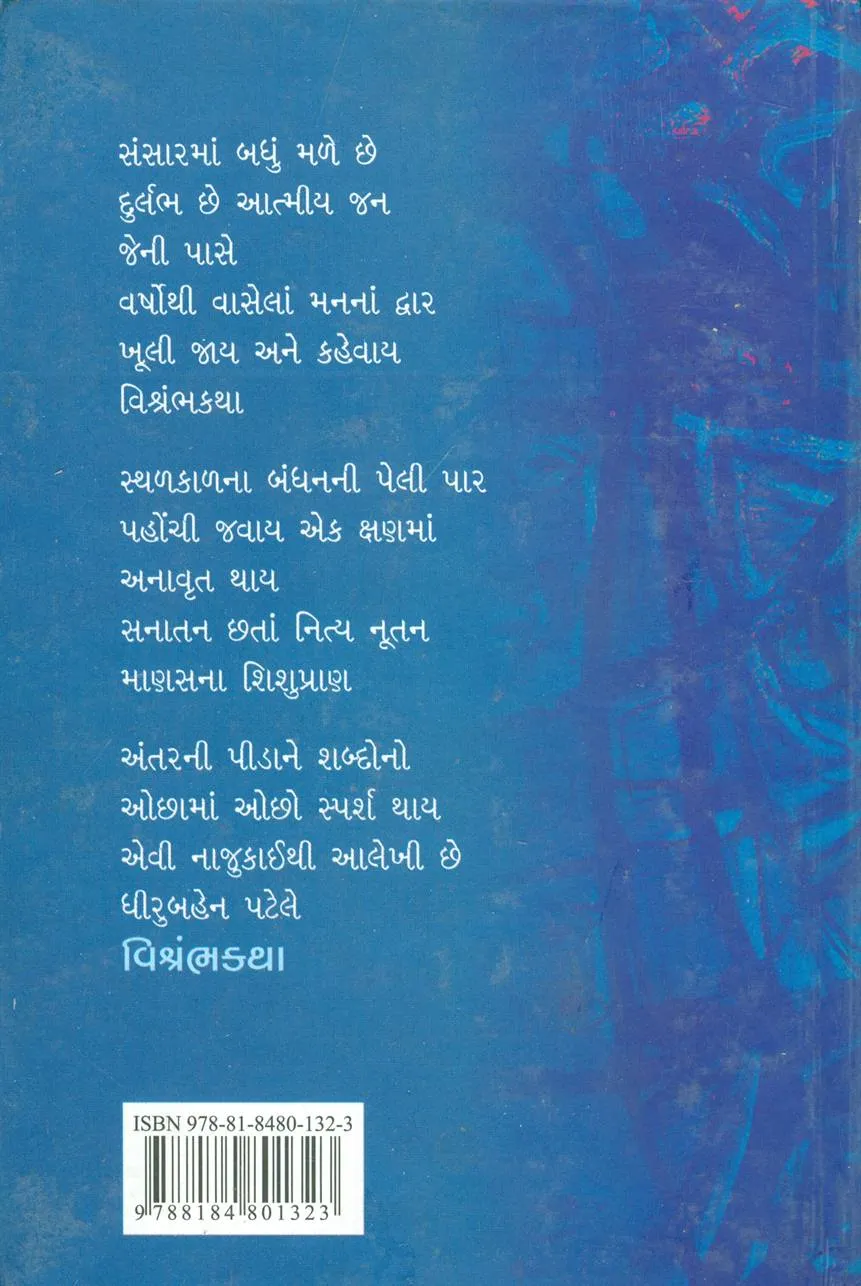 સંસારમાં બધું મળે છે
દુર્લભ છે આત્મીય જન
જેની પાસે
વર્ષોથી વાસેલાં મનનાં દ્વાર
ખૂલી જાય અને કહેવાય
વિશ્રંભકથા
સ્થળકાળના બંધનની પેલી પાર
પહોંચી જવાય એક ક્ષણમાં
અનાવૃત થાય
સનાતન છતાં નિત્ય નૂતન
માણસના શિશુપ્રાણ
અંતરની પીડાને શબ્દોનો
ઓછામાં ઓછો સ્પર્શ થાય
એવી નાજુકાઈથી આલેખી છે
ધીરુબહેન પટેલે
વિશ્રંભકથા
ISBN 978-81-8480-132-3
9 788184 801323